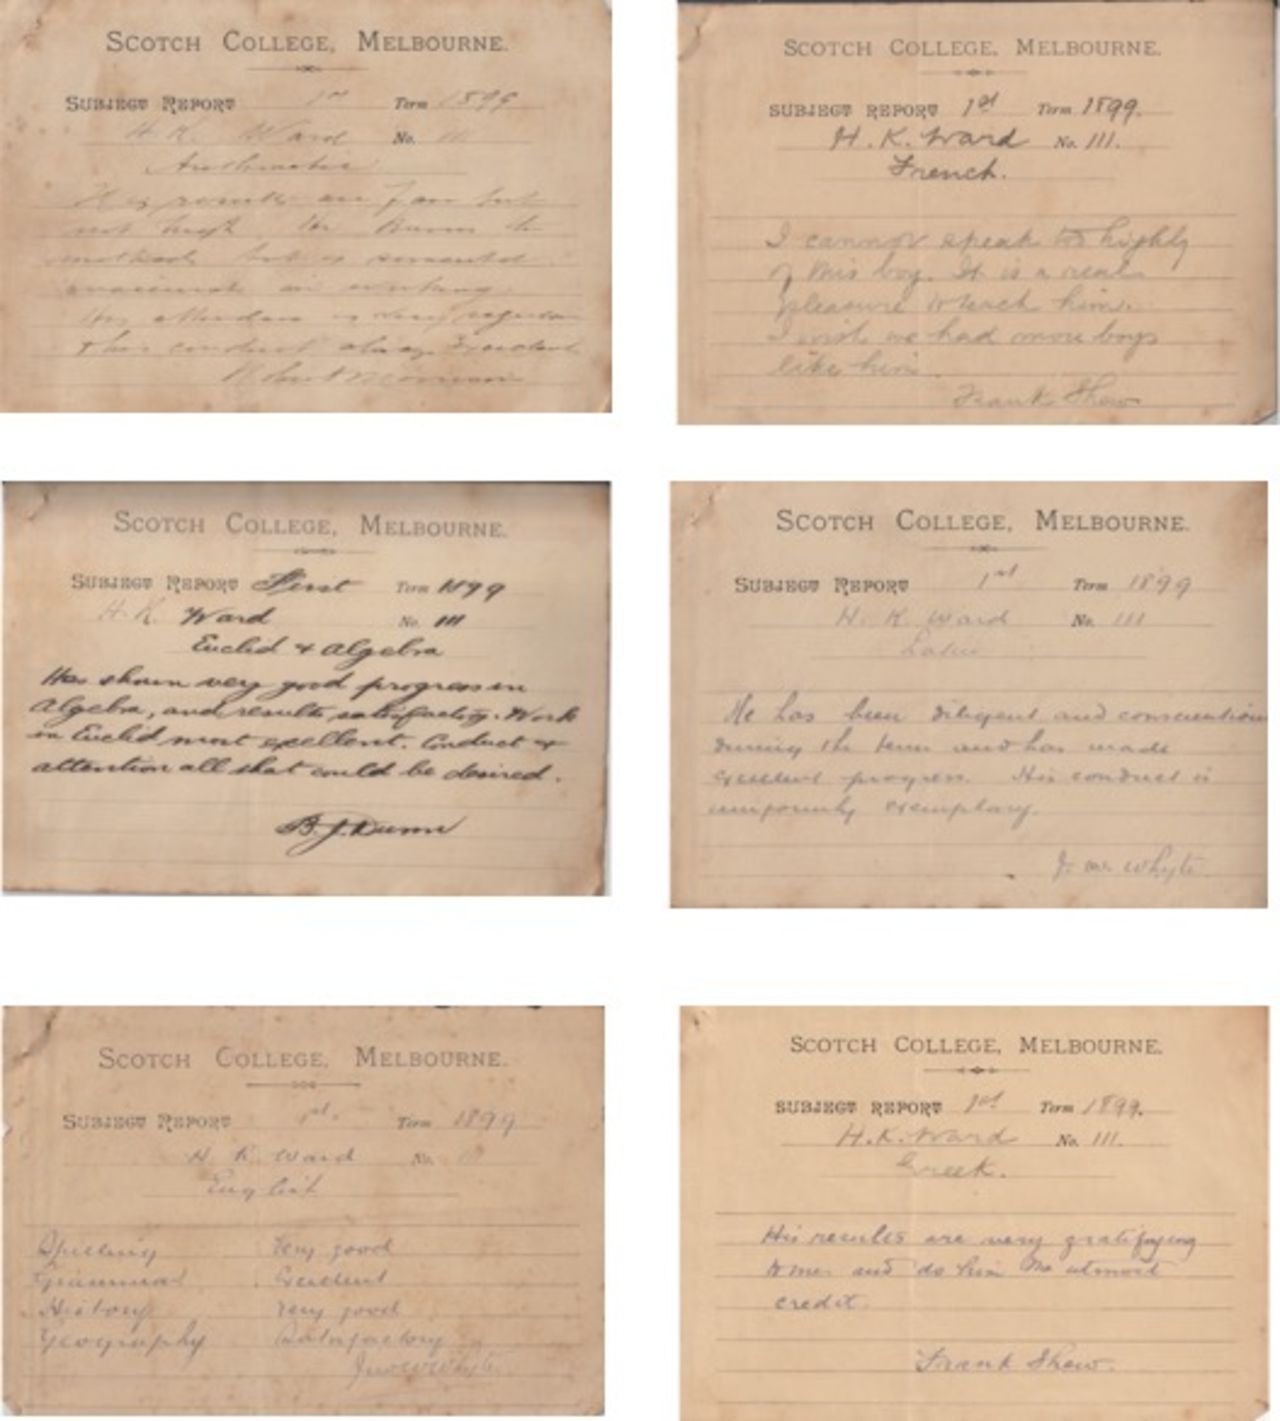 SCOTCH COLLEGE, MELBOURNE.
SUBJECT REPORT 1st Term 1899
H. K. Ward No.
Arithmetic
His results are fair but
not high. He knows the
methods but is somewhat
inaccurate in working.
His attendance is very regular
& his conduct always Excellent
Robert Morrison
SCOTCH COLLEGE, MELBOURNE.
SUBJECT REPORT 1st Term 1899.
H. K. Ward No. 111.
French.
I cannot speak to highly
of this boy. It is a real
pleasure to teach him.
I wish we had more boys
like him.
Frank Shew
SCOTCH COLLEGE, MELBOURNE.
SUBJECT REPORT First Term 1899
H. K. Ward No. 111
Euclid & Algebra
Has shown very good progress in
Algebra, and results satisfactory. Work
in Euclid most excellent. Conduct &
attention all that could be desired.
B. J. Dunn
SCOTCH COLLEGE, MELBOURNE.
SUBJECT REPORT 1st Term 1899
H. K. Ward No. 111
Latin
He has been diligent and conscientious
during the term and has made
excellent progress. His conduct is
uniformly exemplary.
J. W. Whyte
SCOTCH COLLEGE, MELBOURNE.
SUBJECT REPORT 1st. Term 1899
H. K. Ward No.
English
Spelling Very good
Grammar Excellent
History Very good
Geography Satisfactory
Jno W Whyte
SCOTCH COLLEGE, MELBOURNE.
SUBJECT REPORT 1st Term 1899.
H. K. Ward No. 111.
Greek.
His results are very gratifying
to me and do him the utmost
credit.
Frank Shew.